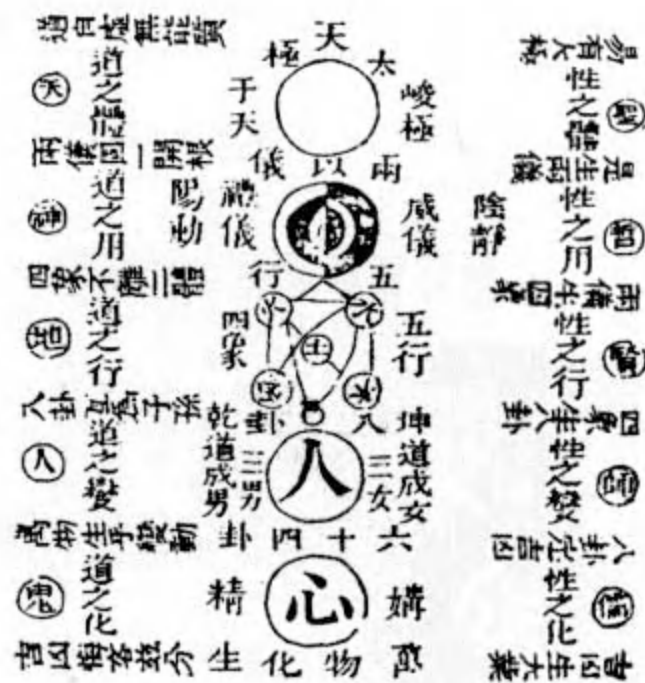 易有太極
性之體
是生兩儀
性之用
兩儀生四象
性之行
四象生八卦
性之變
八卦定吉凶
性之化
吉凶生大業
天
太極
峻極
于天
兩儀
威儀
禮儀
陰靜
陽動
五行
五行
四象
土
八卦
坤道成女
三女
人
三男
乾道成男
六十四卦
媾精
心
萬物化生
道自虛無
天
道之體
兩儀因一開根
神
道之用
四象不離二體
道之行
八卦互為子孫
人
道之變
萬物生乎變動
鬼
道之化
吉凶悔吝茲分